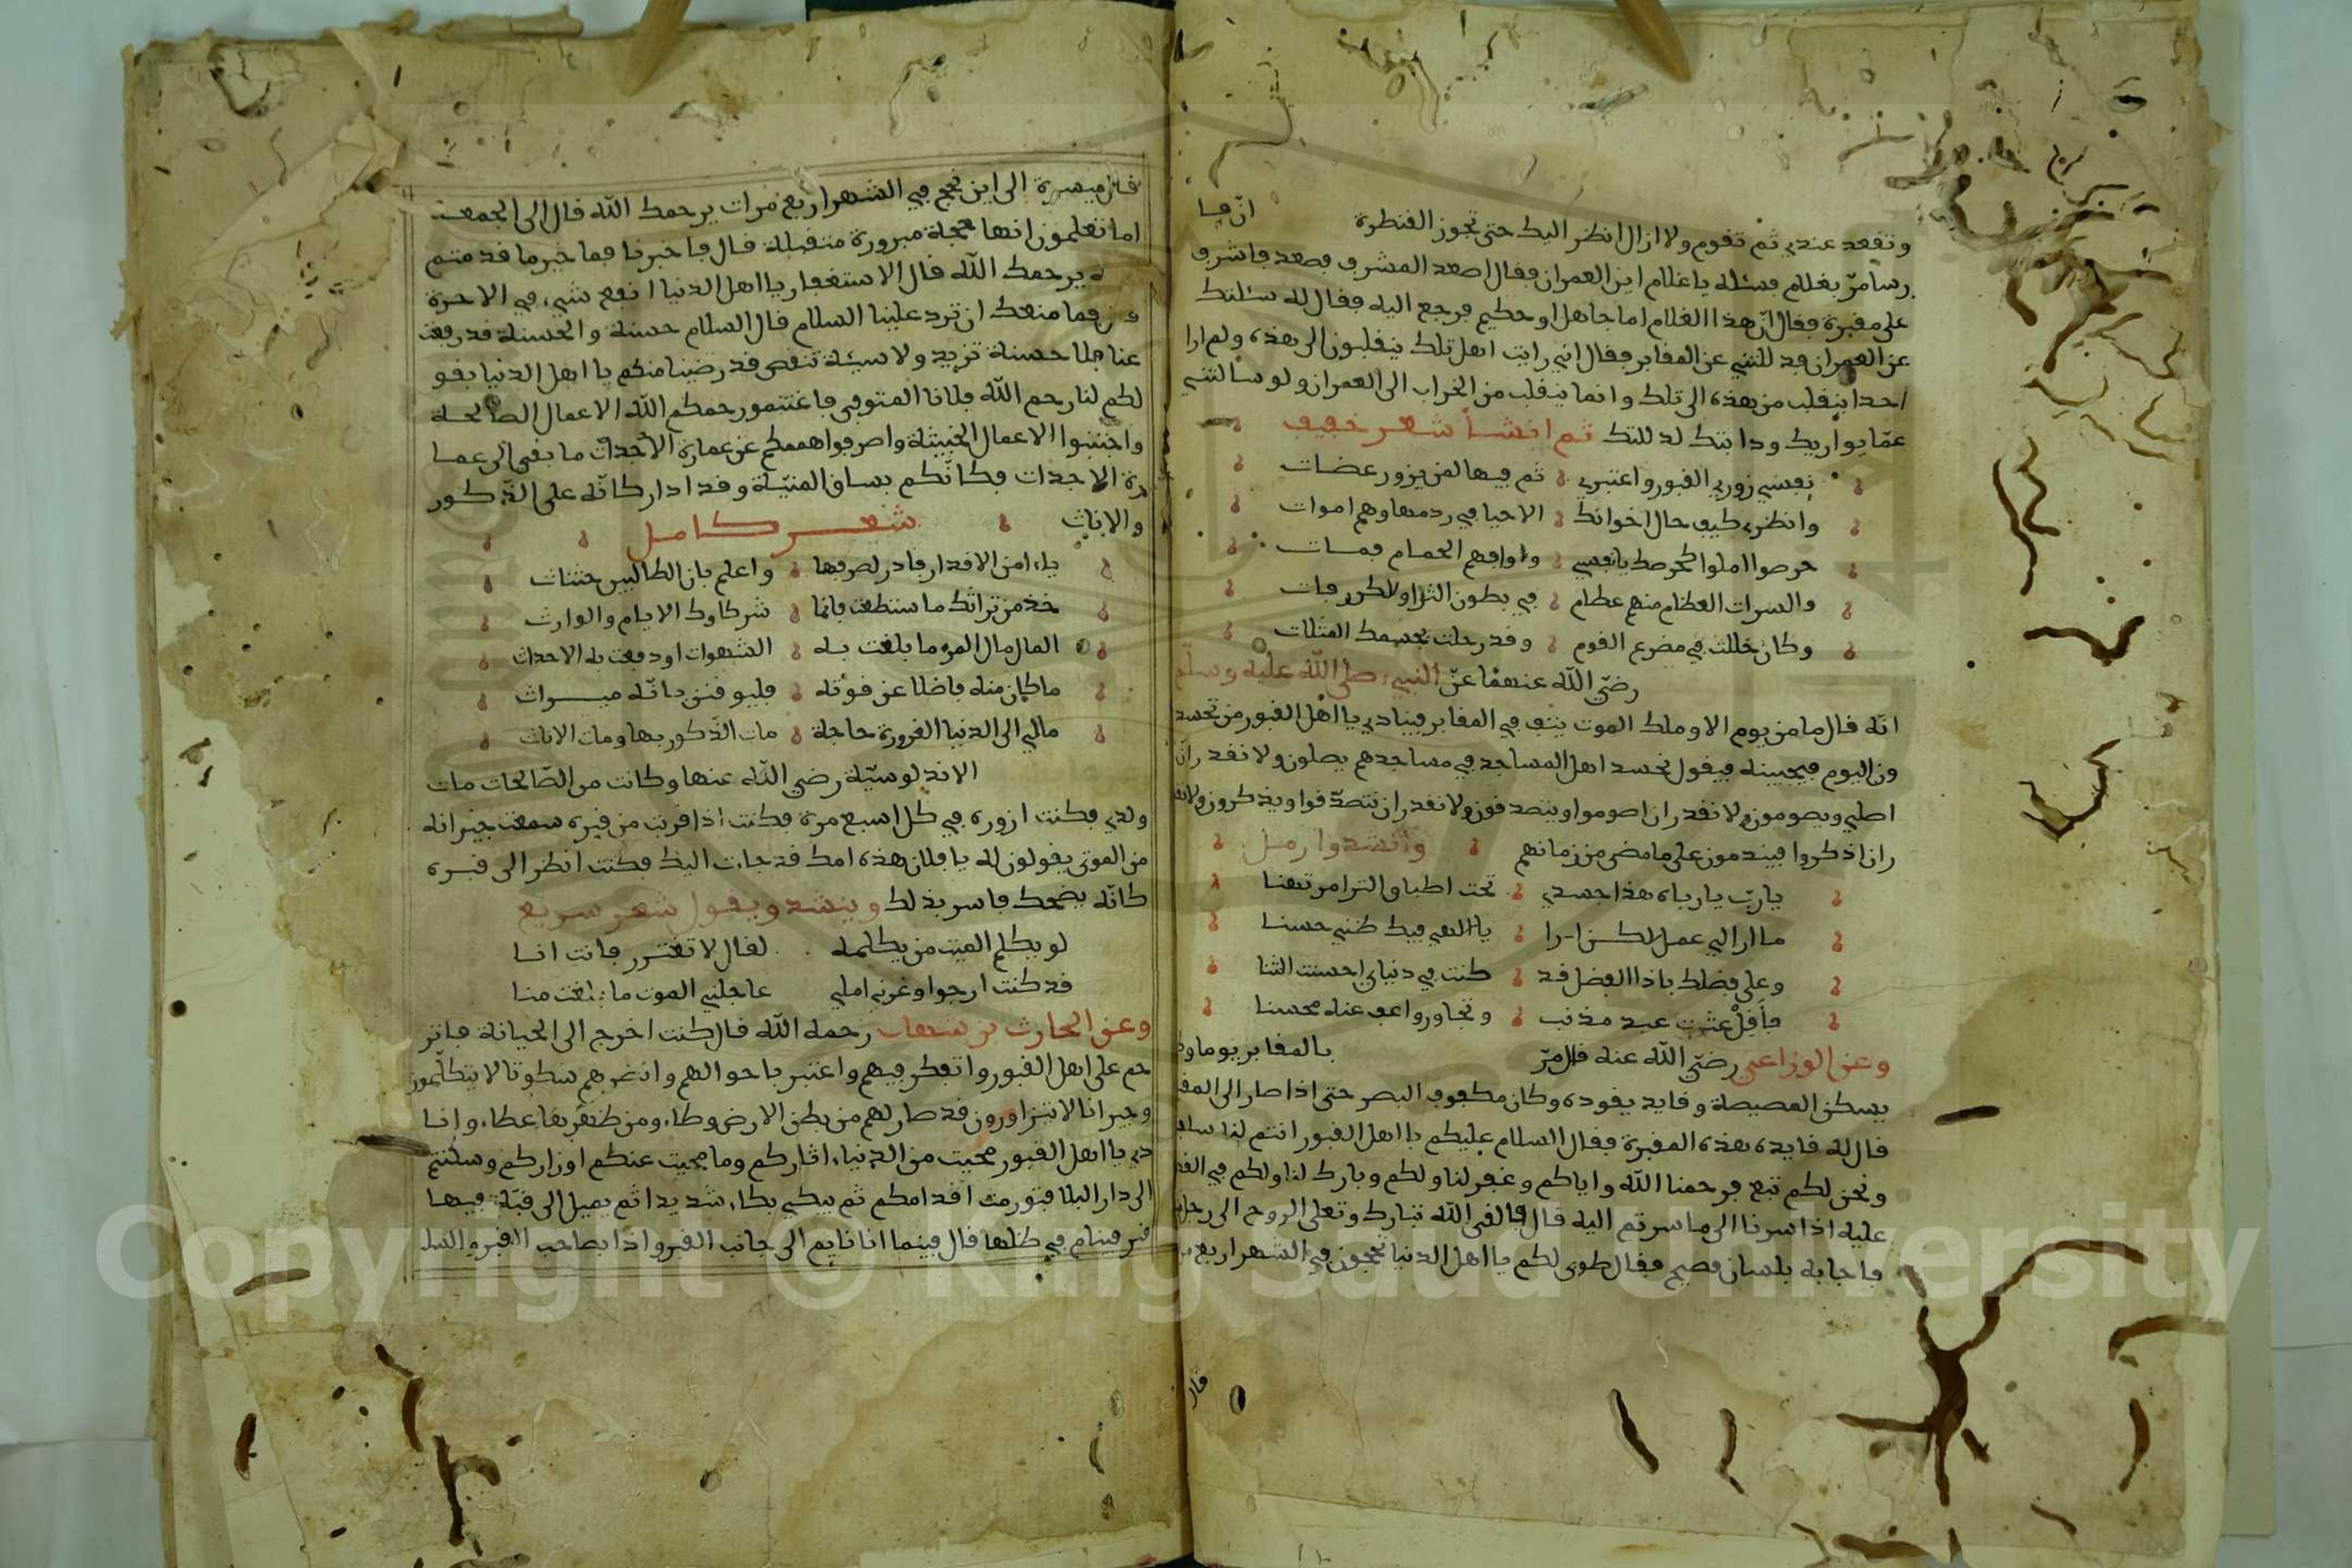 وتقعد عندي ثم تقوم ولا ازال انظر اليك حتى تجوز القنطرة
مرّ بغلام فسئله يا غلام اين العمران فقال اصعد المشرف فصعد فاشرف
على مقبرة فقال ان هذا الغلام اما جاهل او حكيم فرجع اليه فقال له سئلتك
عن العمران فدللتني عن المقابر فقال اني رايت اهل تلك ينقلبون الى هذه ولم ارا
احدا ينقلب من هذه الى تلك وانما ينقلب من الخراب الى العمران ولو سالتني
عمّا يواريك ودابتك لدللتك ثم انشأ شعر خفيف
نفسي زوري القبور واعتبري ثم فيها لمن يزور عضات
وانظري كيف حال اخوانك الاحيا في ردمها وهم اموات
حرصوا املوا كحرصك يا نفسي ووافهم الحمام فمات
والسرات العظام منهم عظام في بطون الثرا رفات
وكان حللت في مضرع القوم وقد رحلت بجسمك المثلات
رضي الله عنهما عن النبي صلى الله عليه وسلم
انه قال ما من يوم الا وملك الموت يقف في المقابر فينادي يا اهل القبور من تحسد
ون اليوم فيجيبنه فيقول نحسد اهل المساجد في مساجدهم يصلون ولا نقدر ان
اصلي ويصومون ولا نقدر ان اصوموا ويتصدقون ولا نقدر ان نتصدقوا ويذكرون ولا نقد
ران اذكروا فيندمون على ما مضى من زمانهم وانشدوا رمل
يا رب يا رباه هذا جسدي تحت اطباق الثرا مرتهنا
ما ارا لي عمل يا الهي فيك ظني حسنا
وعلى فضلك يا ذا الفضل قد كنت في دنياي احسنت الثنا
فأقل عثرت عبد مذنب وتجاوز واعف عنه محسنا
وعن الوزاعي رضي الله عنه قال مرّ بالمقابر يوما وكا
يسكن المصيصة وقايد يقوده وكان مكفوف البصر حتى اذا صار الى المقبـ
قال له قايده هذه المقبرة فقال السلام عليكم يا اهل القبور انتم لنا سلف
ونحن لكم تبع فرحمنا الله واياكم وغفر لنا ولكم وبارك لنا ولكم في القد
عليه اذا سرنا الى ما سرتم اليه قال فالقى الله تبارك وتعلى الروح الى رجل
فاجابه بلسان فصيح فقال طوى لكم يا اهل الدنيا تحجون في الشهر اربع
قال
قال ميسرة الى اين نحج في الشهر اربع مرات يرحمك الله قال الى الجمعة
اما تعلمون انها حجة مبرورة متقبلة قال فاخبرنا فما خير ما قدمتم
يرحمك الله قال الاستغفار يا اهل الدنيا انفع شيء في الاخرة
فما منعك ان ترد علينا السلام قال السلام حسنة والحسنة قد رفعت
عنا فلا حسنة تزيد ولا سيئة تنقص قد رضينا منكم يا اهل الدنيا بقو
لكم لنا رحم الله فلانا المتوفى فاغتنمو رحمكم الله الاعمال الصالحة
واجتنبوا الاعمال الخبيثة واصرفوا هممكم عن عمارة الاجداث ما بقى الى عما
رة الاجداث فكانكم بساق المنيّة وقد ادار كاته على الذكور
والاناث شعر كامل
يا امن الاقدار بادر لصرفها واعلم بان الطالبين حثاث
خذ من تراثك ما ستطعت فانما شركاوك الايام والوارث
المال مال المرء ما بلغت به الشهوات او دفعت به الاحداث
ما كان منه فاضلا عن قوته فليوقنن بانه ميراث
مالي الى الدنيا الغرورة حاجة مات الذكور بها ومات الاناث
الاندلوسيّة رضي الله عنها وكانت من الصالحات مات
ولدي فكنت ازوره في كل اسبع مرة فكنت اذا قربت من قبره سمعت جيرانه
من الموتى يقولون له يا فلان هذه امك قد جات اليك فكنت انظر الى قبره
كانه يضحك فاسر بذلك وينشد ويقول شعر سريع
لو يكلم الميت من يكلمه لقال لا تغترر فانت انا
قد كنت ارجوا وغرني املي عاجلني الموت ما بلغت منا
وعن الحارث بن شهاب رحمه الله قال كنت اخرج الى الجبانة فاتر
حم على اهل القبور واتفكر فيهم واعتبر باحوالهم وانظرهم سكوتا لا يتكلمون
وجيرانا لا يتزاورون قد صار لهم من بطن الارض وطاء ومن ظهرها غطاء وانا
دي يا اهل القبور محيت من الدنيا اثاركم وما محيت عنكم اوزاركم وسكنتم
الى دار البلا فتورمت اقدامكم ثم يبكي بكاء شديدا ثم يميل الى قبة فيها
قبر فينام في ظلها قال فبينما انا نايم الى جانب القبر واذا بصاحب القبر